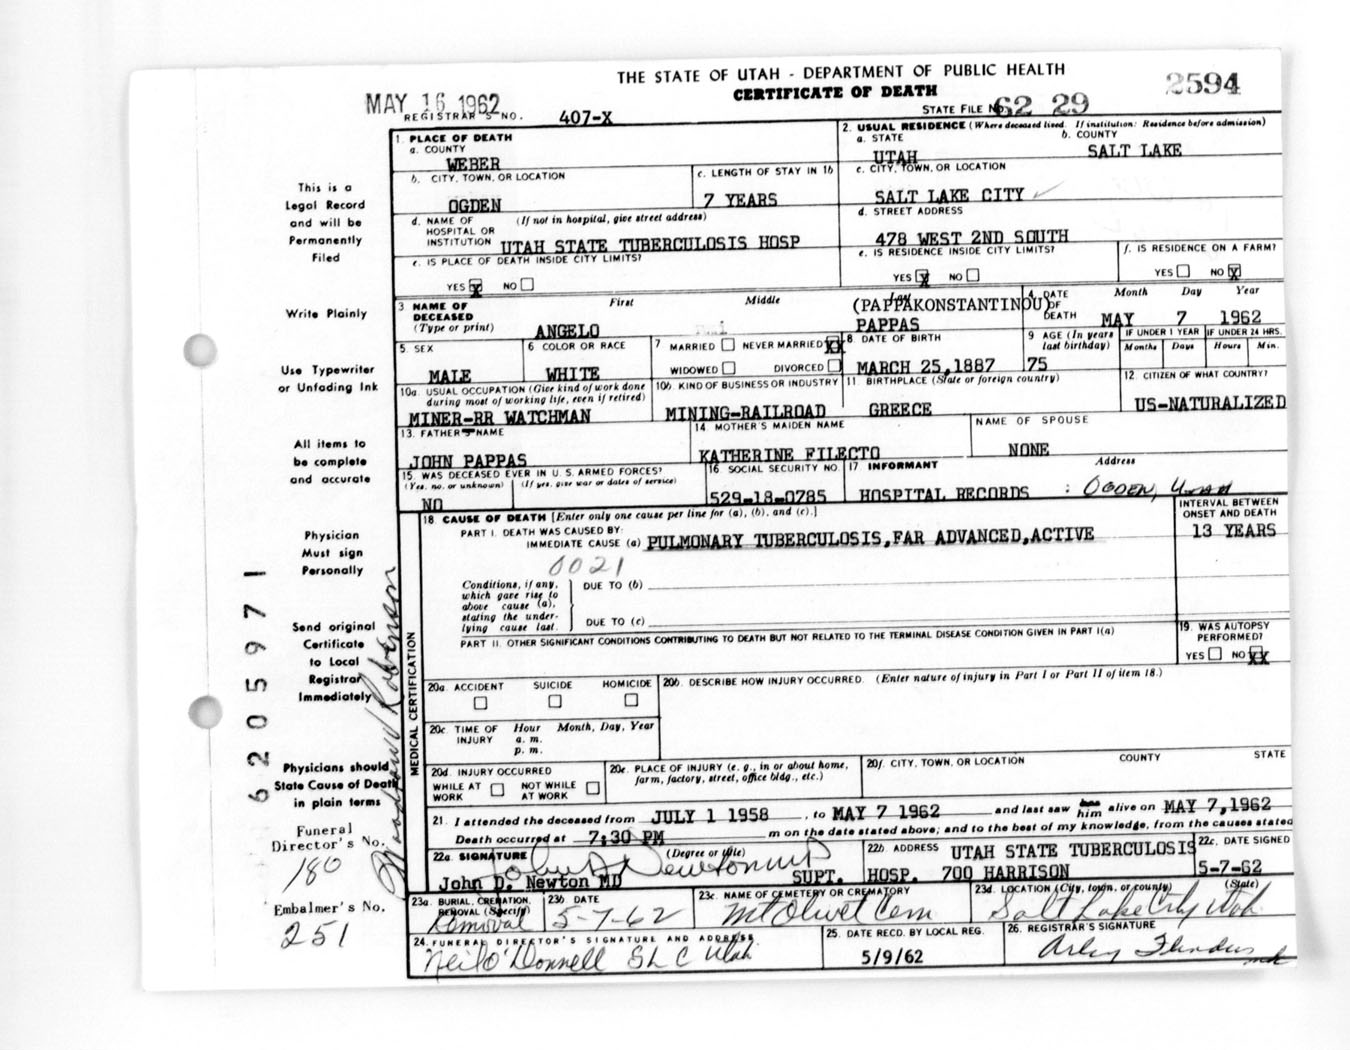 THE STATE OF UTAH - DEPARTMENT OF PUBLIC HEALTH
CERTIFICATE OF DEATH
2594
MAY 16 1962
REGISTRAR'S NO. 407-X
STATE FILE NO. 62 29
This is a
Legal Record
and will be
Permanently
Filed
Write Plainly
Use Typewriter
or Unfading Ink
All items to
be complete
and accurate
Physician
Must sign
Personally
Send original
Certificate
to Local
Registrar
Immediately
Physicians should
State Cause of Death
in plain terms
Funeral
Director's No.
180
Embalmer's No.
251
6205971
MEDICAL CERTIFICATION
1. PLACE OF DEATH
a. COUNTY
WEBER
2. USUAL RESIDENCE (Where deceased lived. If institution: Residence before admission)
a. STATE
UTAH
b. COUNTY
SALT LAKE
b. CITY, TOWN, OR LOCATION
OGDEN
c. LENGTH OF STAY IN 1b
7 YEARS
c. CITY, TOWN, OR LOCATION
SALT LAKE CITY
d. NAME OF HOSPITAL OR INSTITUTION
(If not in hospital, give street address)
UTAH STATE TUBERCULOSIS HOSP
d. STREET ADDRESS
478 WEST 2ND SOUTH
e. IS PLACE OF DEATH INSIDE CITY LIMITS?
YES X NO
e. IS RESIDENCE INSIDE CITY LIMITS?
YES X NO
f. IS RESIDENCE ON A FARM?
YES NO X
3 NAME OF DECEASED
(Type or print)
First Middle Last
ANGELO
(PAPPAKONSTANTINOU)
PAPPAS
4. DATE OF DEATH
Month Day Year
MAY 7 1962
5. SEX
MALE
6 COLOR OR RACE
WHITE
7 MARRIED NEVER MARRIED XX
WIDOWED DIVORCED
8. DATE OF BIRTH
MARCH 25, 1887
9 AGE (In years last birthday)
75
IF UNDER 1 YEAR
Months Days
IF UNDER 24 HRS.
Hours Min.
10a. USUAL OCCUPATION (Give kind of work done during most of working life, even if retired)
MINER-RR WATCHMAN
10b. KIND OF BUSINESS OR INDUSTRY
MINING-RAILROAD
11. BIRTHPLACE (State or foreign country)
GREECE
12 CITIZEN OF WHAT COUNTRY?
US-NATURALIZED
13. FATHER'S NAME
JOHN PAPPAS
14 MOTHER'S MAIDEN NAME
KATHERINE FILECTO
NAME OF SPOUSE
NONE
15. WAS DECEASED EVER IN U. S. ARMED FORCES?
(Yes, no, or unknown) (If yes, give war or dates of service)
NO
16 SOCIAL SECURITY NO.
529-18-0785
17 INFORMANT
HOSPITAL RECORDS
Address
: OGDEN, UTAH
18. CAUSE OF DEATH [Enter only one cause per line for (a), (b), and (c).]
PART I. DEATH WAS CAUSED BY:
IMMEDIATE CAUSE (a) PULMONARY TUBERCULOSIS, FAR ADVANCED, ACTIVE
0021
INTERVAL BETWEEN ONSET AND DEATH
13 YEARS
Conditions, if any, which gave rise to above cause (a), stating the underlying cause last.
DUE TO (b)
DUE TO (c)
PART II. OTHER SIGNIFICANT CONDITIONS CONTRIBUTING TO DEATH BUT NOT RELATED TO THE TERMINAL DISEASE CONDITION GIVEN IN PART I(a)
19. WAS AUTOPSY PERFORMED?
YES NO XX
20a. ACCIDENT SUICIDE HOMICIDE
20b. DESCRIBE HOW INJURY OCCURRED. (Enter nature of injury in Part I or Part II of item 18.)
20c. TIME OF INJURY
Hour Month, Day, Year
a. m.
p. m.
20d. INJURY OCCURRED
WHILE AT WORK NOT WHILE AT WORK
20e. PLACE OF INJURY (e. g., in or about home, farm, factory, street, office bldg., etc.)
20f. CITY, TOWN, OR LOCATION COUNTY STATE
21. I attended the deceased from JULY 1 1958, to MAY 7 1962 and last saw him alive on MAY 7, 1962
Death occurred at 7:30 PM m on the date stated above; and to the best of my knowledge, from the causes stated
22a. SIGNATURE (Degree or title)
John D Newton MD
John D. Newton MD SUPT.
22b. ADDRESS UTAH STATE TUBERCULOSIS
HOSP. 700 HARRISON
22c. DATE SIGNED
5-7-62
23a. BURIAL, CREMATION, REMOVAL (Specify)
Removal
23b DATE
5-7-62
23c. NAME OF CEMETERY OR CREMATORY
Mt Olivet Cem
23d. LOCATION (City, town, or county) (State)
Salt Lake City Utah
24. FUNERAL DIRECTOR'S SIGNATURE AND ADDRESS
Neil O'Donnell SLC Utah
25. DATE RECD. BY LOCAL REG.
5/9/62
26. REGISTRAR'S SIGNATURE